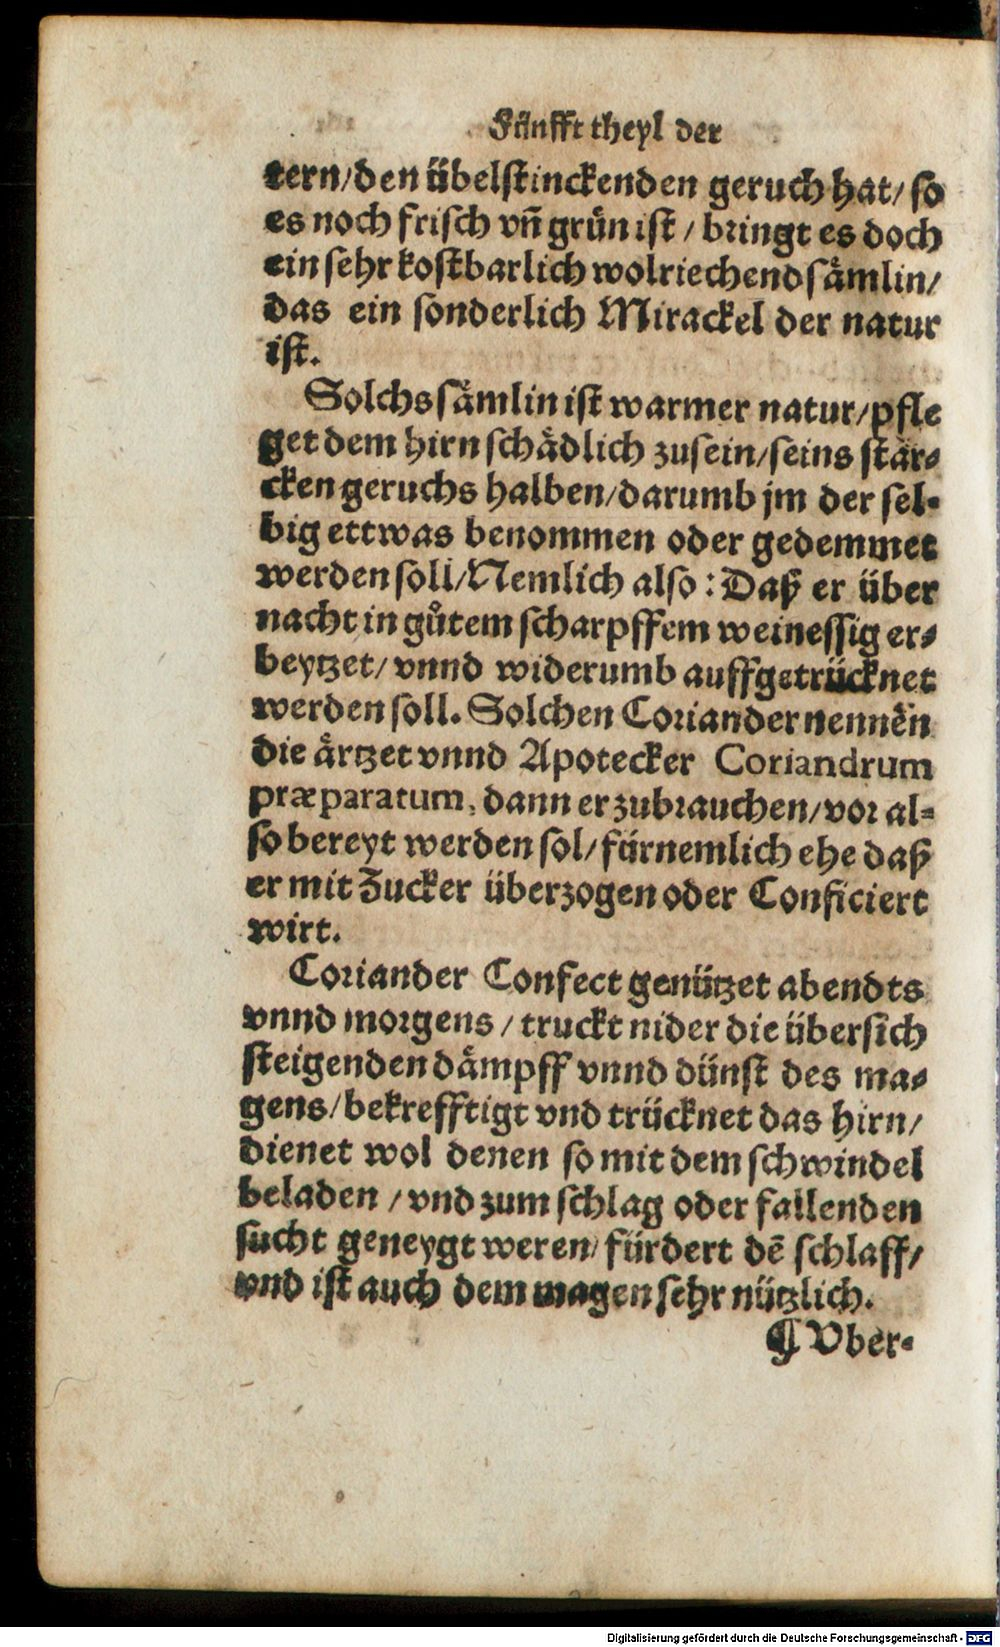 Fünfft theyl der
tern/den übelstinckenden geruch hat/ so
es noch frisch vñ grün ist / bringt es doch
ein sehr kostbarlich wolriechend sämlin/
das ein sonderlich Mirackel der natur
ist.
Solchs sämlin ist warmer natur/pfle
get dem hirn schädlich zusein/seins stär-
cken geruchs halben/darumb jm der sel-
big ettwas benommen oder gedemmet
werden soll/Nemlich also: Daß er über
nacht in gůtem scharpffem weinessig er-
beytzet/ vnnd widerumb auffgetrücknet
werden soll. Solchen Coriander nennen
die ärtzet vnnd Apotecker Coriandrum
præparatum, dann er zubrauchen/vor al-
so bereyt werden sol/ fürnemlich ehe daß
er mit Zucker überzogen oder Conficiert
wirt.
Coriander Confect genützet abendts
vnnd morgens / truckt nider die übersich
steigenden dämpff vnnd dünst des ma-
gens/bekrefftigt vnd trücknet das hirn/
dienet wol denen so mit dem schwindel
beladen / vnd zum schlag oder fallenden
sucht geneygt weren/ fürdert dē schlaff/
vnd ist auch dem magen sehr nützlich.
¶ Vber-
Digitalisierung gefördert durch die Deutsche Forschungsgemeinschaft - DFG